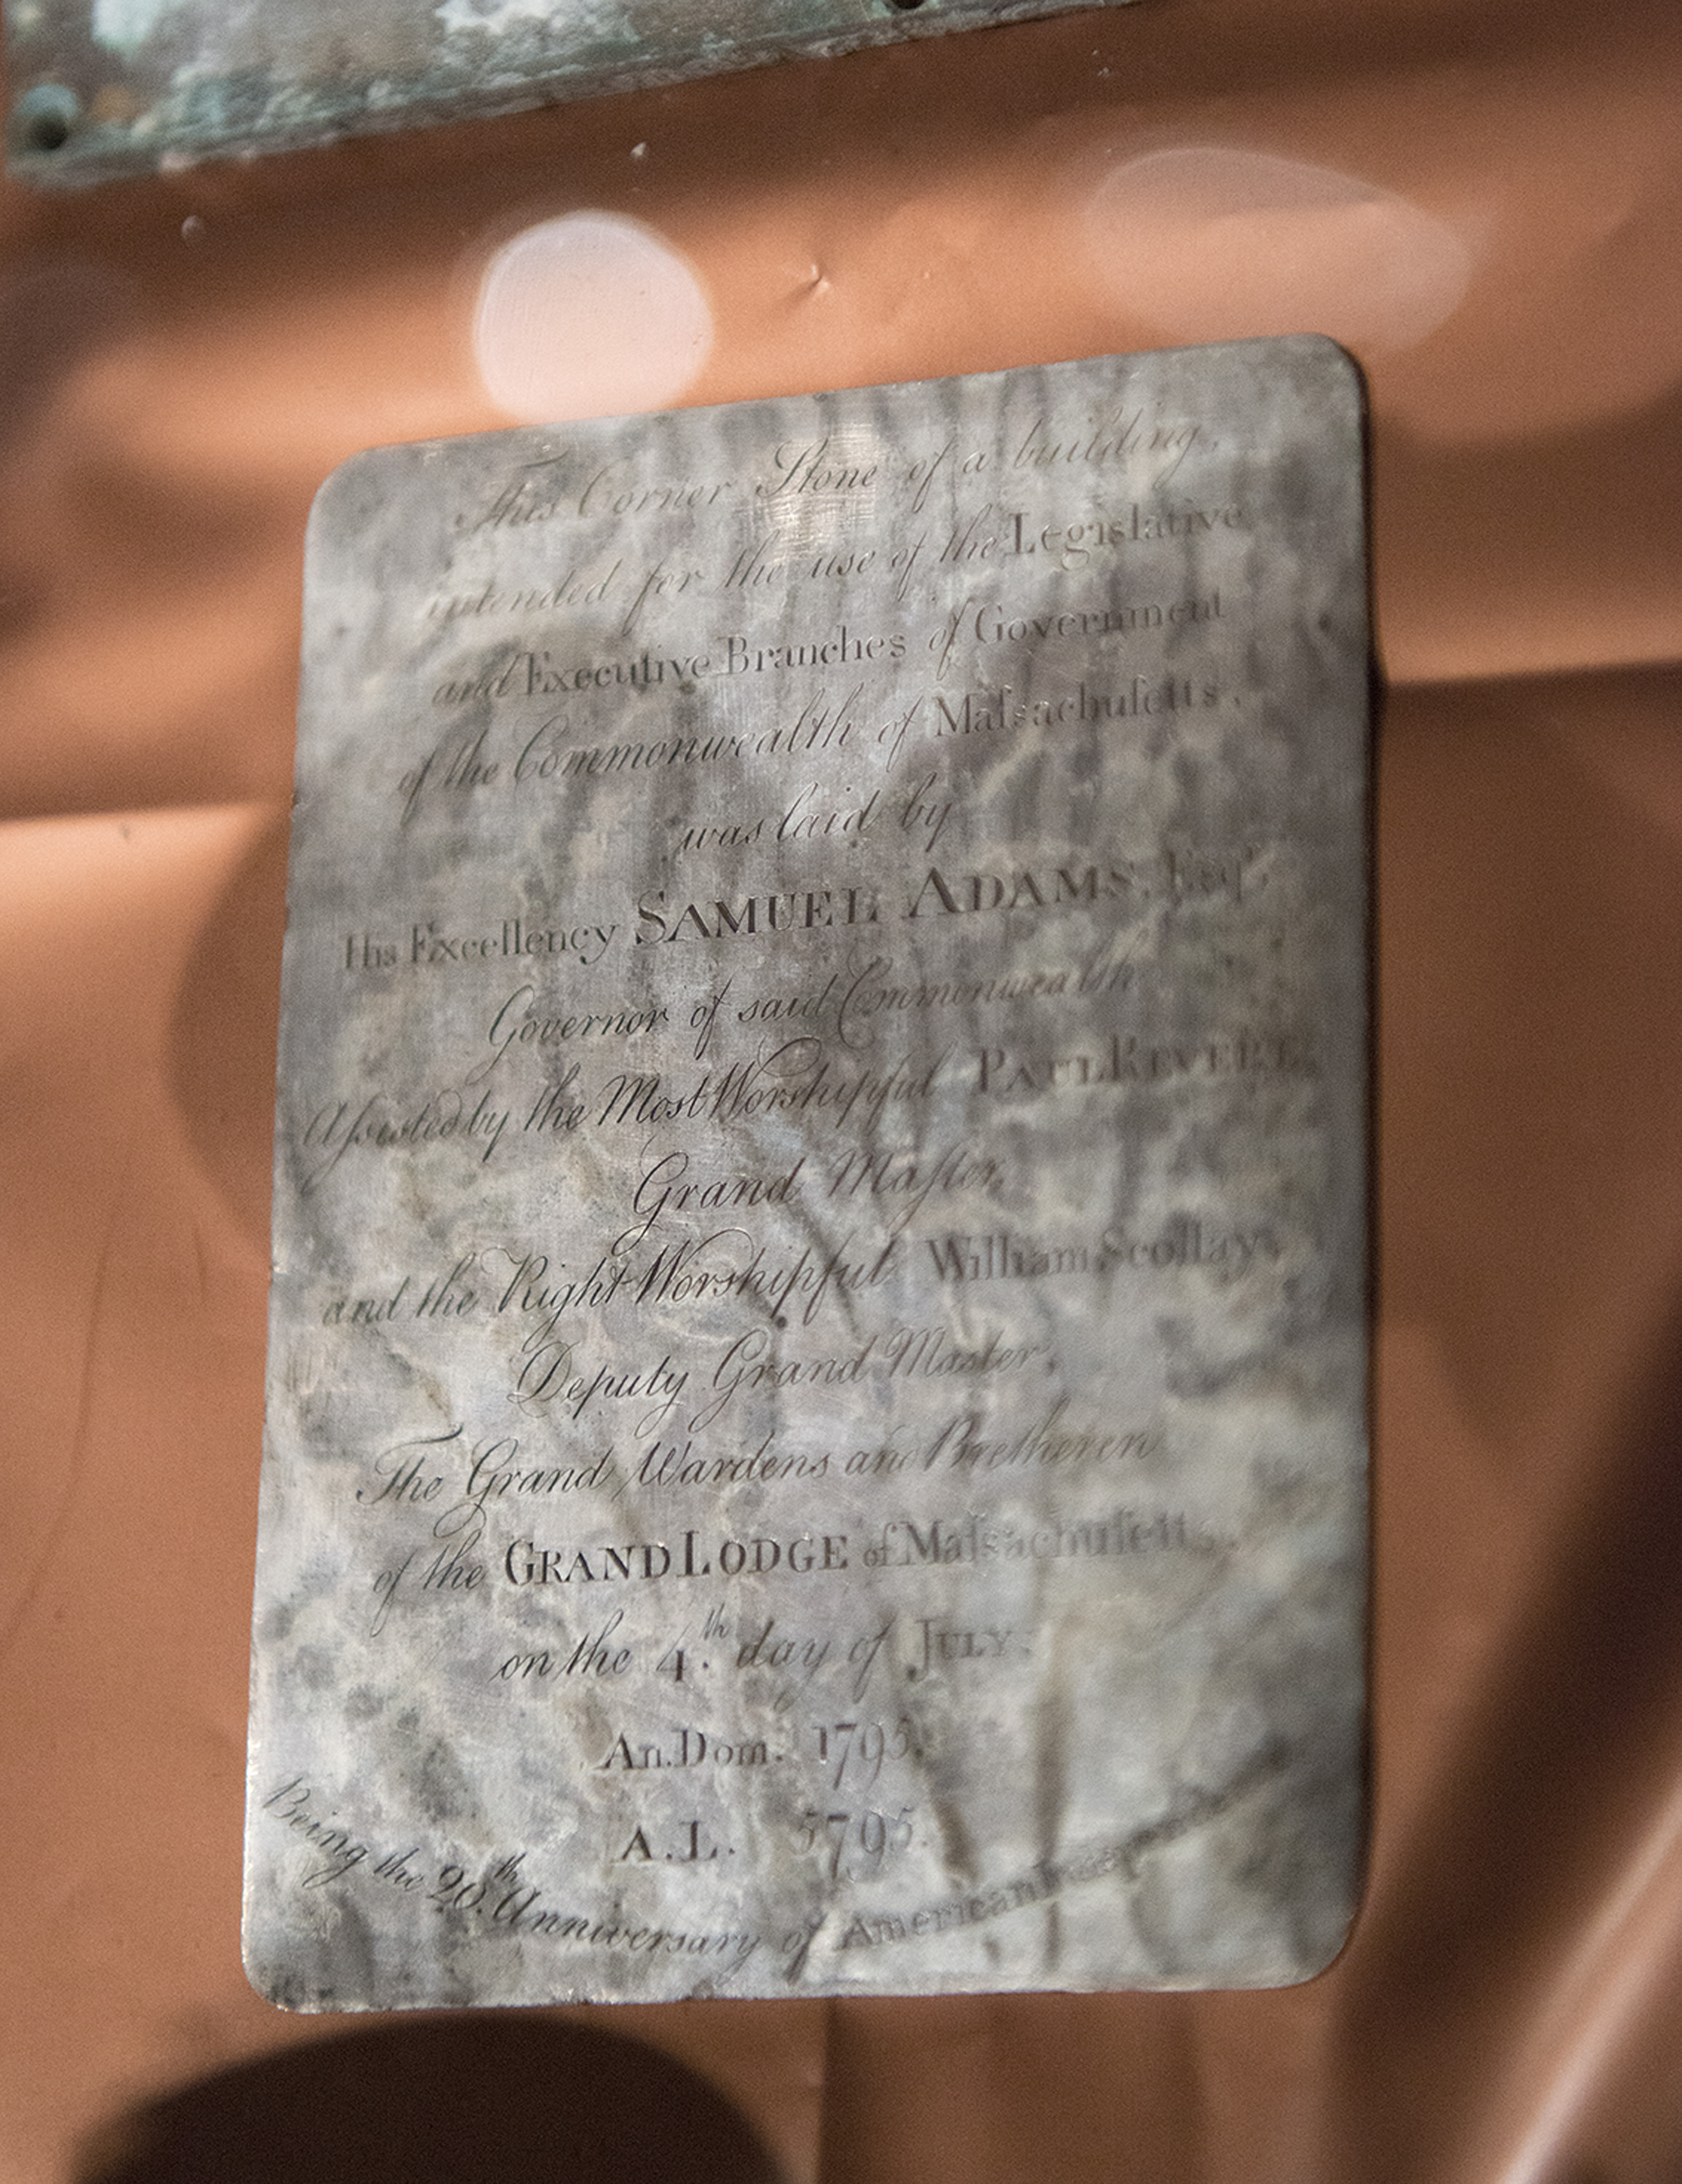 This Corner Stone of a building,
intended for the use of the Legislative
and Executive Branches of Government
of the Commonwealth of Maſsachuſetts,
was laid by
His Excellency SAMUEL ADAMS, Esqr.
Governor of said Commonwealth
Aſsisted by the Most Worshipful PAUL REVERE,
Grand Maſter,
and the Right Worshipful William Scollay,
Deputy Grand Master,
The Grand Wardens and Bretheren
of the GRAND LODGE of Maſsachuſetts,
on the 4.th day of JULY.
An. Dom. 1795.
A.L. 5795.
Being the 20.th Anniversary of American Independence